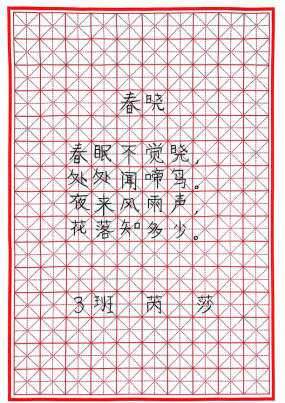 春晓
春眠不觉晓，
处处闻啼鸟。
夜来风雨声，
花落知多少。
3班 芮 莎